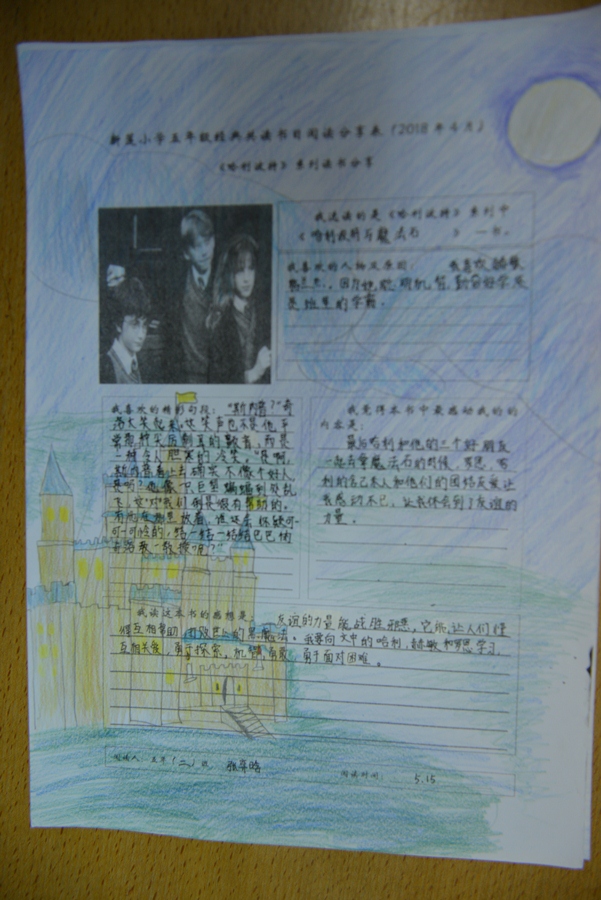 小学五年级经典共读书目阅读分享表（2018年4月）
《哈利波特》系列读书分享
我选读的是《哈利波特》系列中
《哈利波特与魔法石》一书。
我喜欢的人物及原因：我喜欢赫敏
因为她 聪明机智，勤奋好学
是班里的学霸。
我喜欢的精彩句段：“斯内普？”奇
洛大笑起来，这笑声也不是他平
常那种尖厉刺耳的颤音，而是
一种令人胆寒的冷笑，“是啊，
斯内普看上去确实不像个好人
是吗？他像只巨型蝙蝠到处乱
飞，对我们倒是很有帮助的。
有他在那里放着，谁还会怀疑可-
可-可怜的，结-结-结结巴巴的
奇洛教-教授呢？”
我觉得本书中最感动我的的
内容是：
最后哈利和他的三个好朋友
一起去拿魔法石的时候，罗恩、哈
利的舍己救人和他们的团结友爱让
我感动不已，让我体会到了友谊的
力量。
我读这本书的感想是： 友谊的力量能战胜邪恶，它能让人们懂
得互相帮助，
我要向文中的哈利，赫敏和罗恩学习，
互相关爱，勇于探索，机智勇敢，勇于面对困难。
阅读人：五年（二）班
阅读时间： 5.15